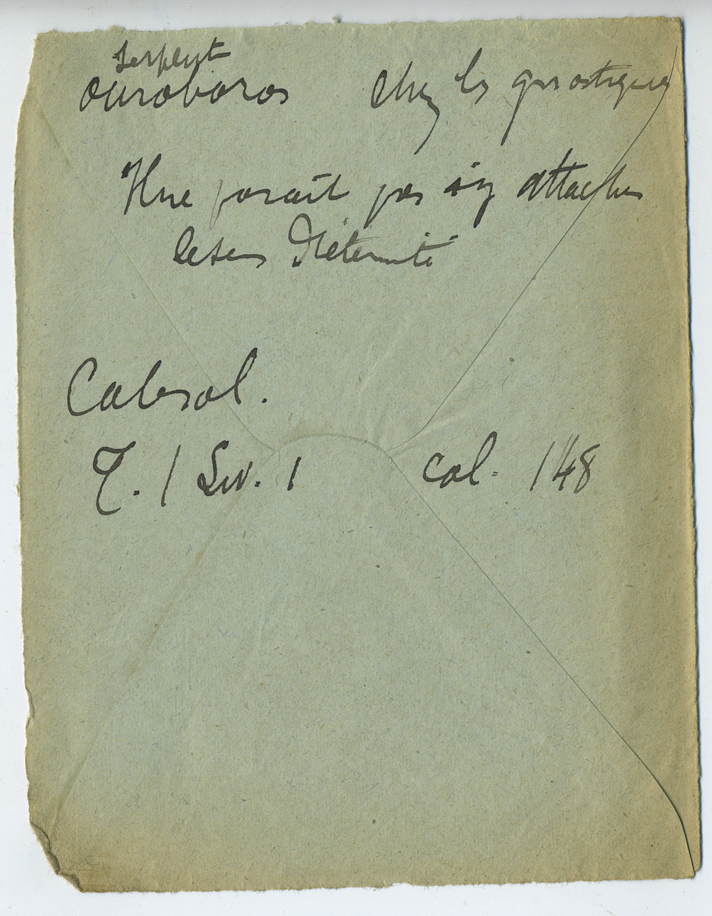 Serpent
ouroboros chez les gnostiques
Il ne parait pas s'y attacher
le sens d'éternité
Cabrol.
T. 1 Liv. 1 col. 148